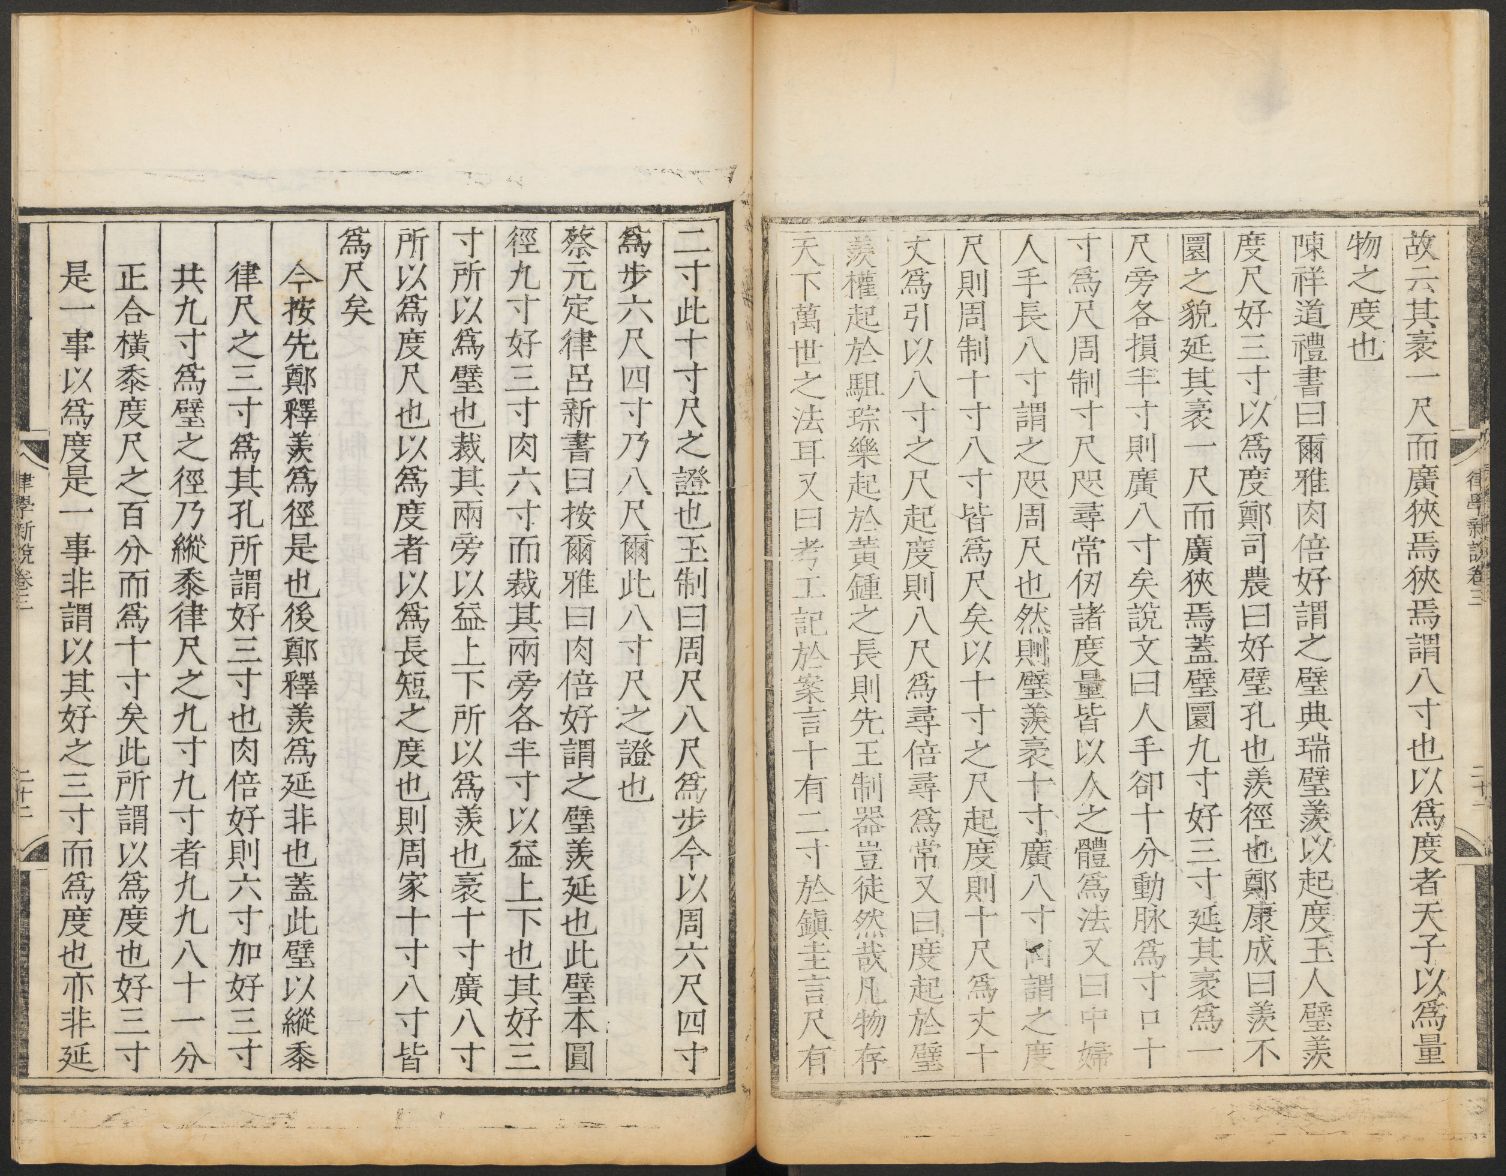 故云其袤一尺而廣狹焉狹焉謂八寸也以為度者天子以為量
物之度也
陳祥道禮書曰爾雅肉倍好謂之璧典瑞璧羨以起度玉人璧羨
度尺好三寸以為度鄭司農曰好璧孔也羨徑也鄭康成曰羨不
圜之貌延其袤一尺而廣狹焉蓋璧圜九寸好三寸延其袤為一
尺旁各損半寸則廣八寸矣說文曰人手卻十分動脉為寸口十
寸為尺周制寸尺咫尋常仞諸度量皆以人之體為法又曰中婦
人手長八寸謂之咫周尺也然則璧羨袤十寸廣八寸同謂之度
尺則周制十寸八寸皆為尺矣以十寸之尺起度則十尺為丈十
丈為引以八寸之尺起度則八尺為尋倍尋為常又曰度起於璧
羨權起於駔琮樂起於黃鍾之長則先王制器豈徒然哉凡物存
天下萬世之法耳又曰考工記於案言十有二寸於鎮圭言尺有
律學新說卷三
二十二
二寸此十寸尺之證也王制曰周尺八尺為步今以周六尺四寸
為步六尺四寸乃八尺爾此八寸尺之證也
蔡元定律呂新書曰按爾雅曰肉倍好謂之璧羨延也此璧本圓
徑九寸好三寸肉六寸而裁其兩旁各半寸以益上下也其好三
寸所以為璧也裁其兩旁以益上下所以為羨也袤十寸廣八寸
所以為度尺也以為度者以為長短之度也則周家十寸八寸皆
為尺矣
今按先鄭釋羨為徑是也後鄭釋羨為延非也蓋此璧以縱黍
律尺之三寸為其孔所謂好三寸也肉倍好則六寸加好三寸
共九寸為璧之徑乃縱黍律尺之九寸九寸者九九八十一分
正合橫黍度尺之百分而為十寸矣此所謂以為度也好三寸
是一事以為度是一事非謂以其好之三寸而為度也亦非延
律學新說卷三
二十二